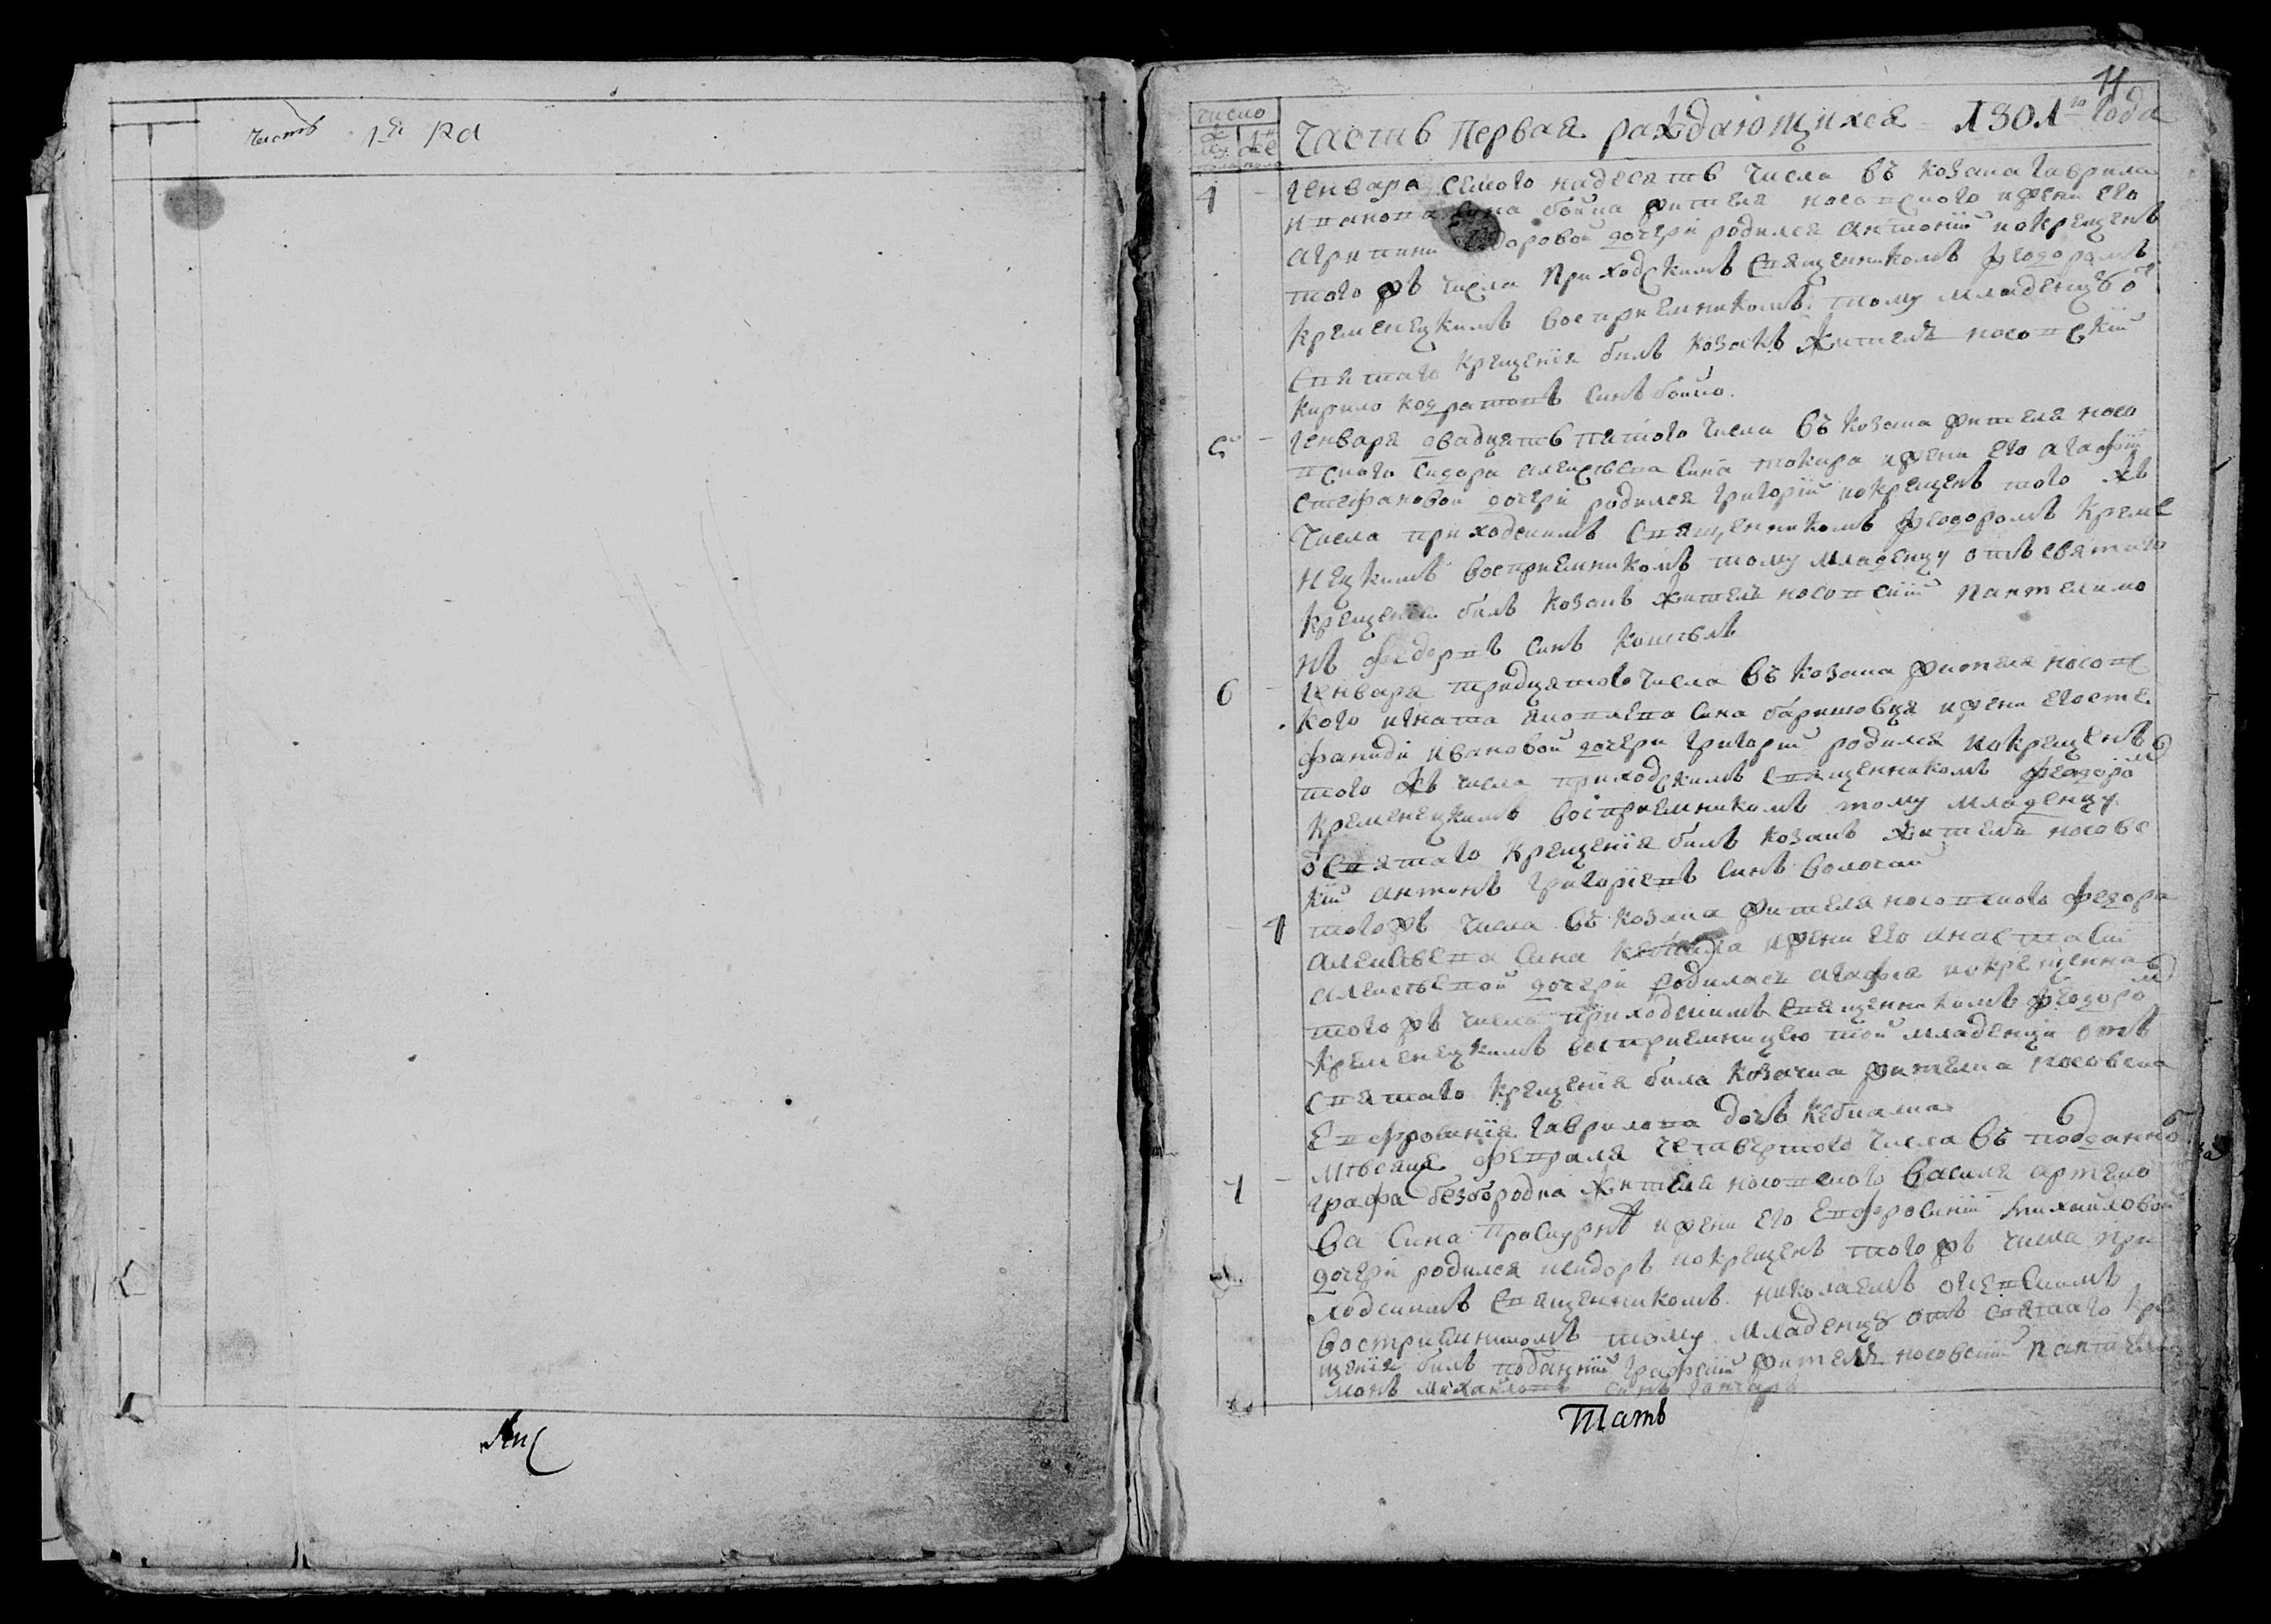 Часть 1я ра
11
число
му же
Часть Первая раждающихся 1801го Года
4 Генвара семого надесять Числа въ козака Гаврила
сина бойка жителя носовского и жени его
агрипини дочери родился антоній и окрещенъ
того жъ числа Приходскимъ Священникомъ Феодоромъ
Кременецкимъ восприемникомъ тому младенцу от
Святаго Крещенія билъ козакъ житель носовскій
Кирило Кодратовъ Синъ бойко.
5 Генваря двадцять пятого Числа въ козака жителя носо
вского Сидора алексѣева Сина токара и жени его агафіи
Стефановой дочери родился Григорій и окрещенъ того жъ
Числа приходскимъ Священникомъ Феодоромъ Креме
нецкимъ восприемникомъ тому младенцу отъ святаго
Крещенія билъ козакъ житель носовскій Пантелимо
нъ Федоровъ Синъ
6 Генваря тридцятого Числа въ козака жителя носовс
кого игната Сина баришовця и жени его Сте
фаниди ивановой дочери Григорій родился и окрещенъ
того жъ числа приходскимъ Священникомъ Феодоромъ
Кременецкимъ восприемникомъ тому младенцу
от Святаго Крещенія билъ козакъ житель носовс
кій антонъ Григоріевъ Синъ волосан
1 того жъ числа въ козака жителя носовского Федора
алексѣева Сина и жени его анастасіи
алексѣевой дочери родилась агафія и окрещенна
того жъ числа приходскимъ Священникомъ Феодоромъ
Кременецкимъ восприемницею той младенци отъ
Святаго Крещенія била козачка жителка носовска
Евфросинія Гаврилова дочь
Мѣсяця февраля Четвертого Числа въ подданно
7 графа безбородка жителя носовского Василя артемо
ва Сина Проскурнѣ и жени его Евфросиніи Михайловой
дочери родился исидоръ и окрещенъ того жъ числа при
ходскимъ Священникомъ николаемъ
восприемникомъ тому Младенцу отъ святаго кре
щенія билъ подданній графскій житель носовскій Пантели
монъ Михайловъ синъ Гончаръ
Тать